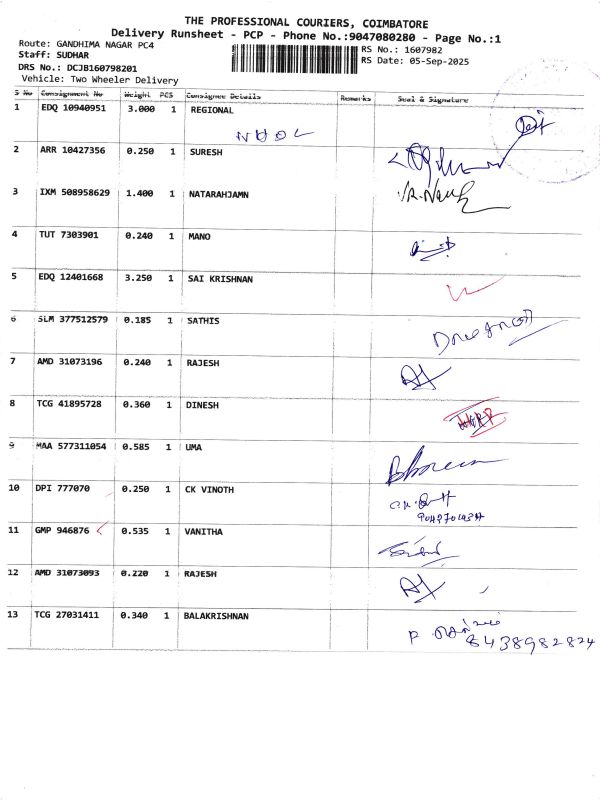 THE PROFESSIONAL COURIERS, COIMBATORE
Delivery Runsheet - PCP - Phone No.:9047080280 - Page No.:1
Route: GANDHIMA NAGAR PC4
RS No.: 1607982
Staff: SUDHAR
RS Date: 05-Sep-2025
DRS No.: DCJB160798201
Vehicle: Two Wheeler Delivery
S No Consignment No Weight PCS Consignee Details Remarks Seal & Signature
1 EDQ 10940951 3.000 1 REGIONAL
2 ARR 10427356 0.250 1 SURESH
3 IXM 508958629 1.400 1 NATARAHJAMN
4 TUT 7303901 0.240 1 MANO
5 EDQ 12401668 3.250 1 SAI KRISHNAN
6 SLM 377512579 0.185 1 SATHIS
7 AMD 31073196 0.240 1 RAJESH
8 TCG 41895728 0.360 1 DINESH
9 MAA 577311054 0.585 1 UMA
10 DPI 777070 0.250 1 CK VINOTH
11 GMP 946876 0.535 1 VANITHA
12 AMD 31073093 0.220 1 RAJESH
13 TCG 27031411 0.340 1 BALAKRISHNAN
8438982824